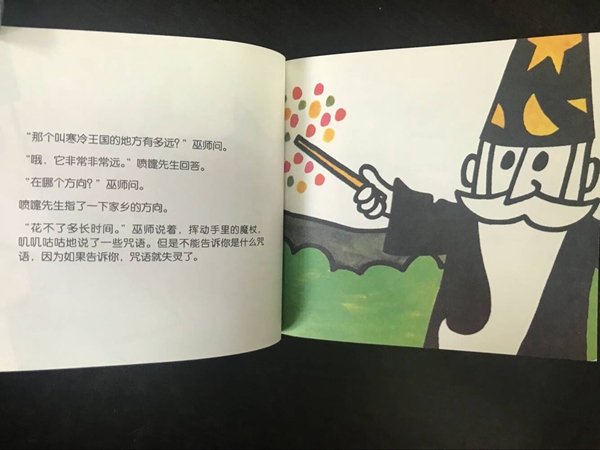 “那个叫寒冷王国的地方有多远？”巫师问。
“哦，它非常非常远。”喷嚏先生回答。
“在哪个方向？”巫师问。
喷嚏先生指了一下家乡的方向。
“花不了多长时间。”巫师说着，挥动手里的魔杖，
叽叽咕咕地说了一些咒语。但是不能告诉你是什么咒
语，因为如果告诉你，咒语就失灵了。